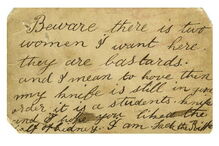 Beware there is two
women I want here
they are bastards.
and I mean to have them
my knife is still in good
order it is a students knife
and I hope you liked the
half of kidney. I am Jack the Ripper